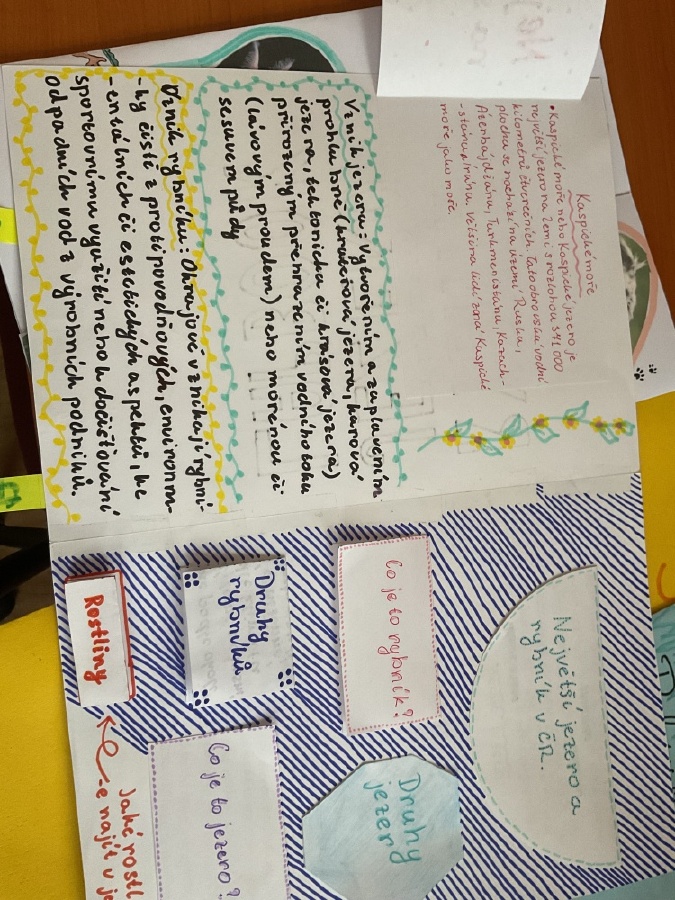 Kaspické moře
• Kaspické moře nebo Kaspické jezero je
největší jezero na Zemi s rozlohou 371 000
kilometrů čtverečních. Tato obrovská vodní
plocha se nachází na území Ruska,
Ázerbájdžánu, Turkmenistánu, Kazach-
-stánu a Íránu. Většina lidí zná Kaspické
moře jako moře
Vznik jezera: Vytvořením a zaplavením
prohlubně (kráterová jezera, karová
jezera, tektonická či krasová jezera)
přirozeným přehrazením vodního toku
(lávovým proudem) nebo morénou či
sesuvem půdy
Vznik rybníku: Obrajově vznikají rybní-
-ky čistě z protipovodňových, environm-
-entálních či estetických aspektů, ke
sportovnímu využití nebo k dočišťování
odpadních vod z výrobních podniků.
Největší jezero a
rybník v ČR.
Co je to rybník?
Druhy
rybníků
Rostliny
Druhy
jezer
Co je to jezero?
Jaké rostl
e najít u je